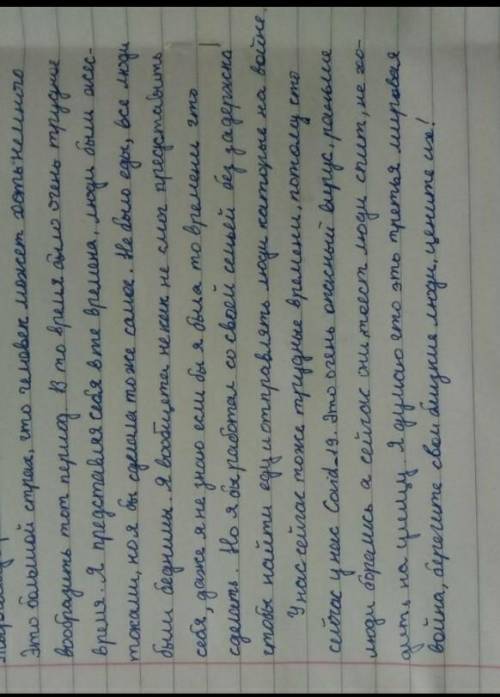 Это большой страх, что человек может хоть немного
вообразить тот период. В то время было очень трудние
время. Я представляя себя в те времена, люди были жес-
токами, но я бы сделала тоже самое. Не было еды, все люди
были бедными. Я вообщета не как не смог представить
себя, даже я не знаю если бы я была то времени что
сделать. Но я бы работал со своей семьей без задержска
чтобы найти еду и отправлять люди которые на войне.
У нас сейчас тоже трудные времени, потому что
сейчас у нас Covid-19. Это очень опасный вирус, раньше
люди боролись а сейчас люди спит, не хо-
дить на улицу. Я думаю что это третья мировая
война, берегите свои близкие люди, цените их!